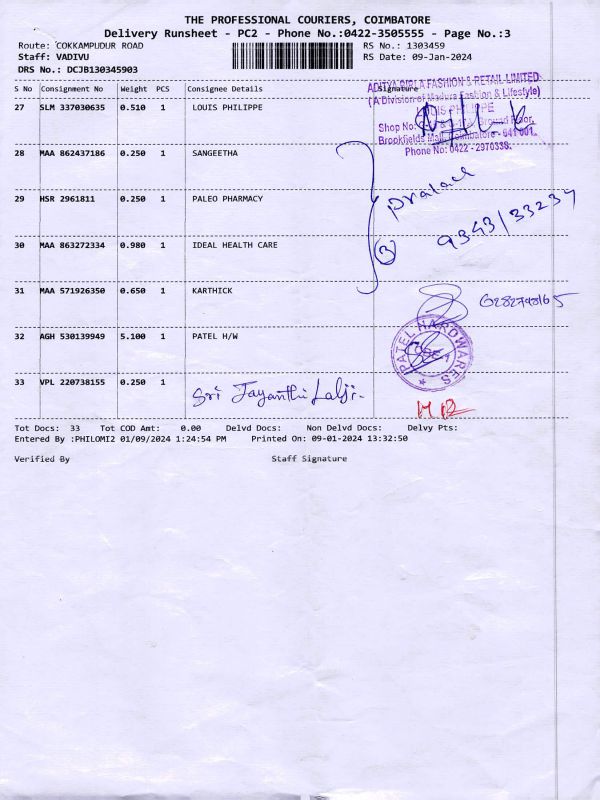 THE PROFESSIONAL COURIERS, COIMBATORE
Delivery Runsheet - PC2 - Phone No.:0422-3505555 - Page No.:3
Route: COKKAMPUDUR ROAD RS No.: 1303459
Staff: VADIVU RS Date: 09-Jan-2024
DRS No.: DCJB130345903
S No Consignment No Weight PCS Consignee Details Signature
ADITYA BIRLA FASHION & RETAIL LIMITED
(A Division of Madura Fashion & Lifestyle)
27 SLM 337030635 0.510 1 LOUIS PHILIPPE
LOUIS PHILIPPE
Shop No: Ground Floor,
Brookfields Mall, Coimbatore - 641 001.
Phone No: 0422 - 2970338.
28 MAA 862437186 0.250 1 SANGEETHA
29 HSR 2961811 0.250 1 PALEO PHARMACY
9343/33234
30 MAA 863272334 0.980 1 IDEAL HEALTH CARE
3
31 MAA 571926350 0.650 1 KARTHICK
32 AGH 530139949 5.100 1 PATEL H/W
PATEL HARDWARES
33 VPL 220738155 0.250 1 Sri Jayanthi Lalji.
Tot Docs: 33 Tot COD Amt: 0.00 Delvd Docs: Non Delvd Docs: Delvy Pts:
Entered By :PHILOMI2 01/09/2024 1:24:54 PM Printed On: 09-01-2024 13:32:50
Verified By Staff Signature